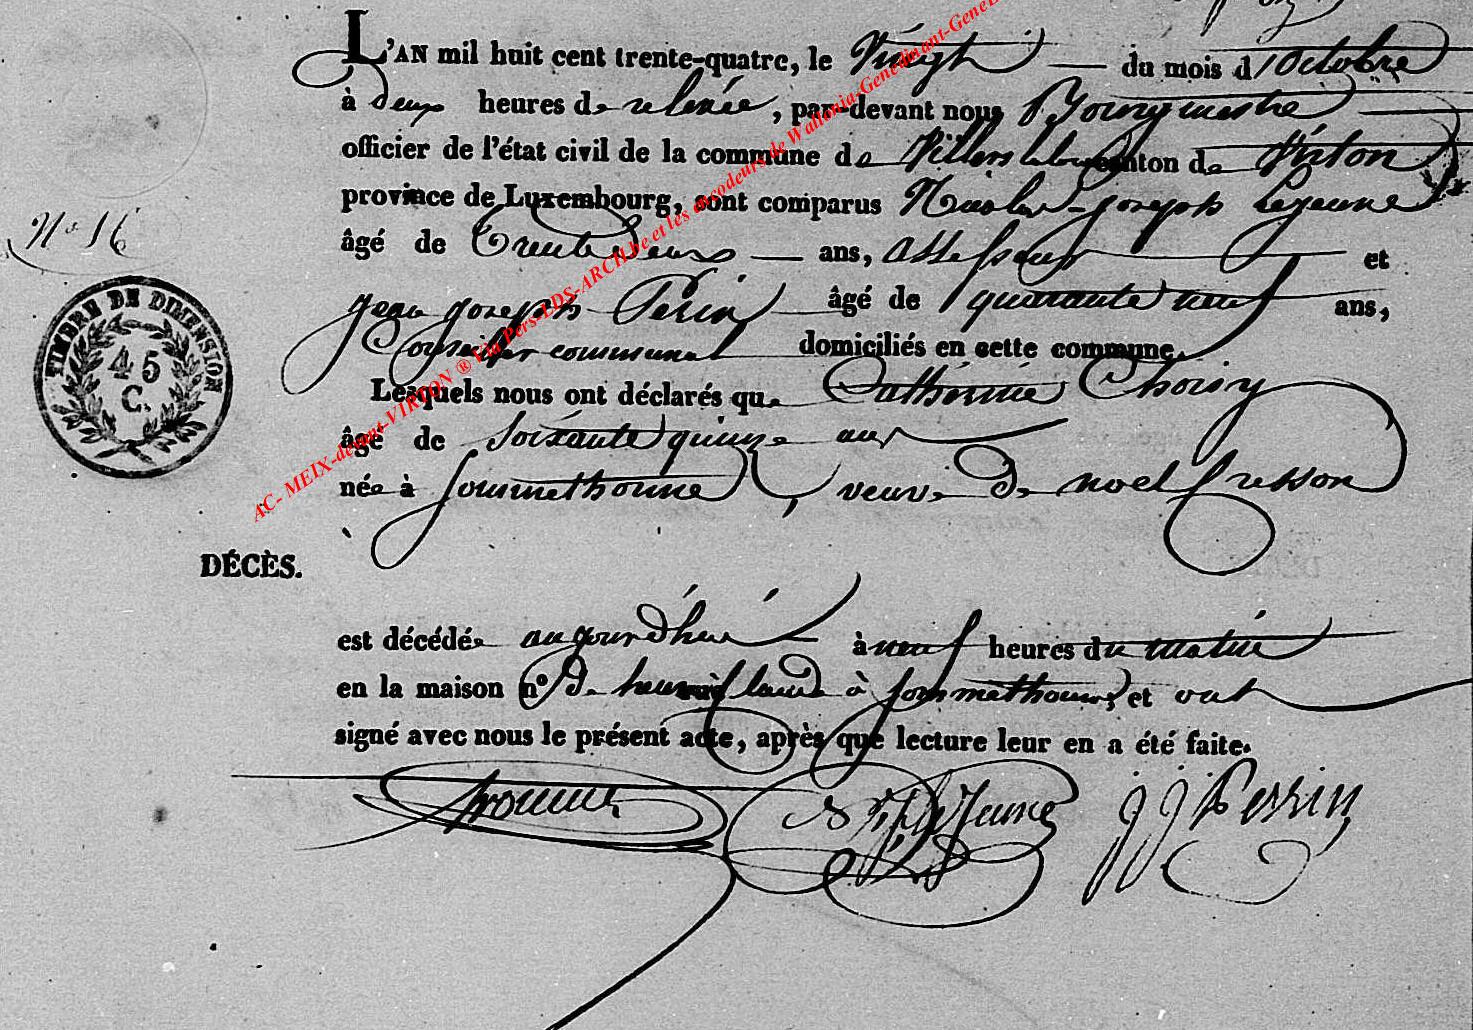 L'AN mil huit cent trente-quatre, le Vingt — du mois d'Octobre
à deux heures de relevée, par-devant nous Bourgmestre
officier de l'état civil de la commune de Villers la loue canton de Virton
province de Luxembourg, sont comparus Nicolas-joseph Lejeune
N° 16
âgé de Trente deux — ans, assesseur et
jean joseph Perin âgé de quarante neuf ans,
Conseiller communal domiciliés en cette commune.
Lesquels nous ont déclarés que Cathérine Choisy
âgé de soixante quinze ans
née à sommethonne, veuve de noel fresson
TIMBRE DE DIMENSION
45
C.
DÉCÈS.
est décédée aujourd'hui à neuf heures du matin
en la maison n° de à sommethonne, et ont
signé avec nous le présent acte, après que lecture leur en a été faite.
Lejeune j j Perrin
AC- MEIX-devant-VIRTON ® Via Pers-LDS-ARCH.be et les encodeurs de Wallonia-Genedinant-GeneL